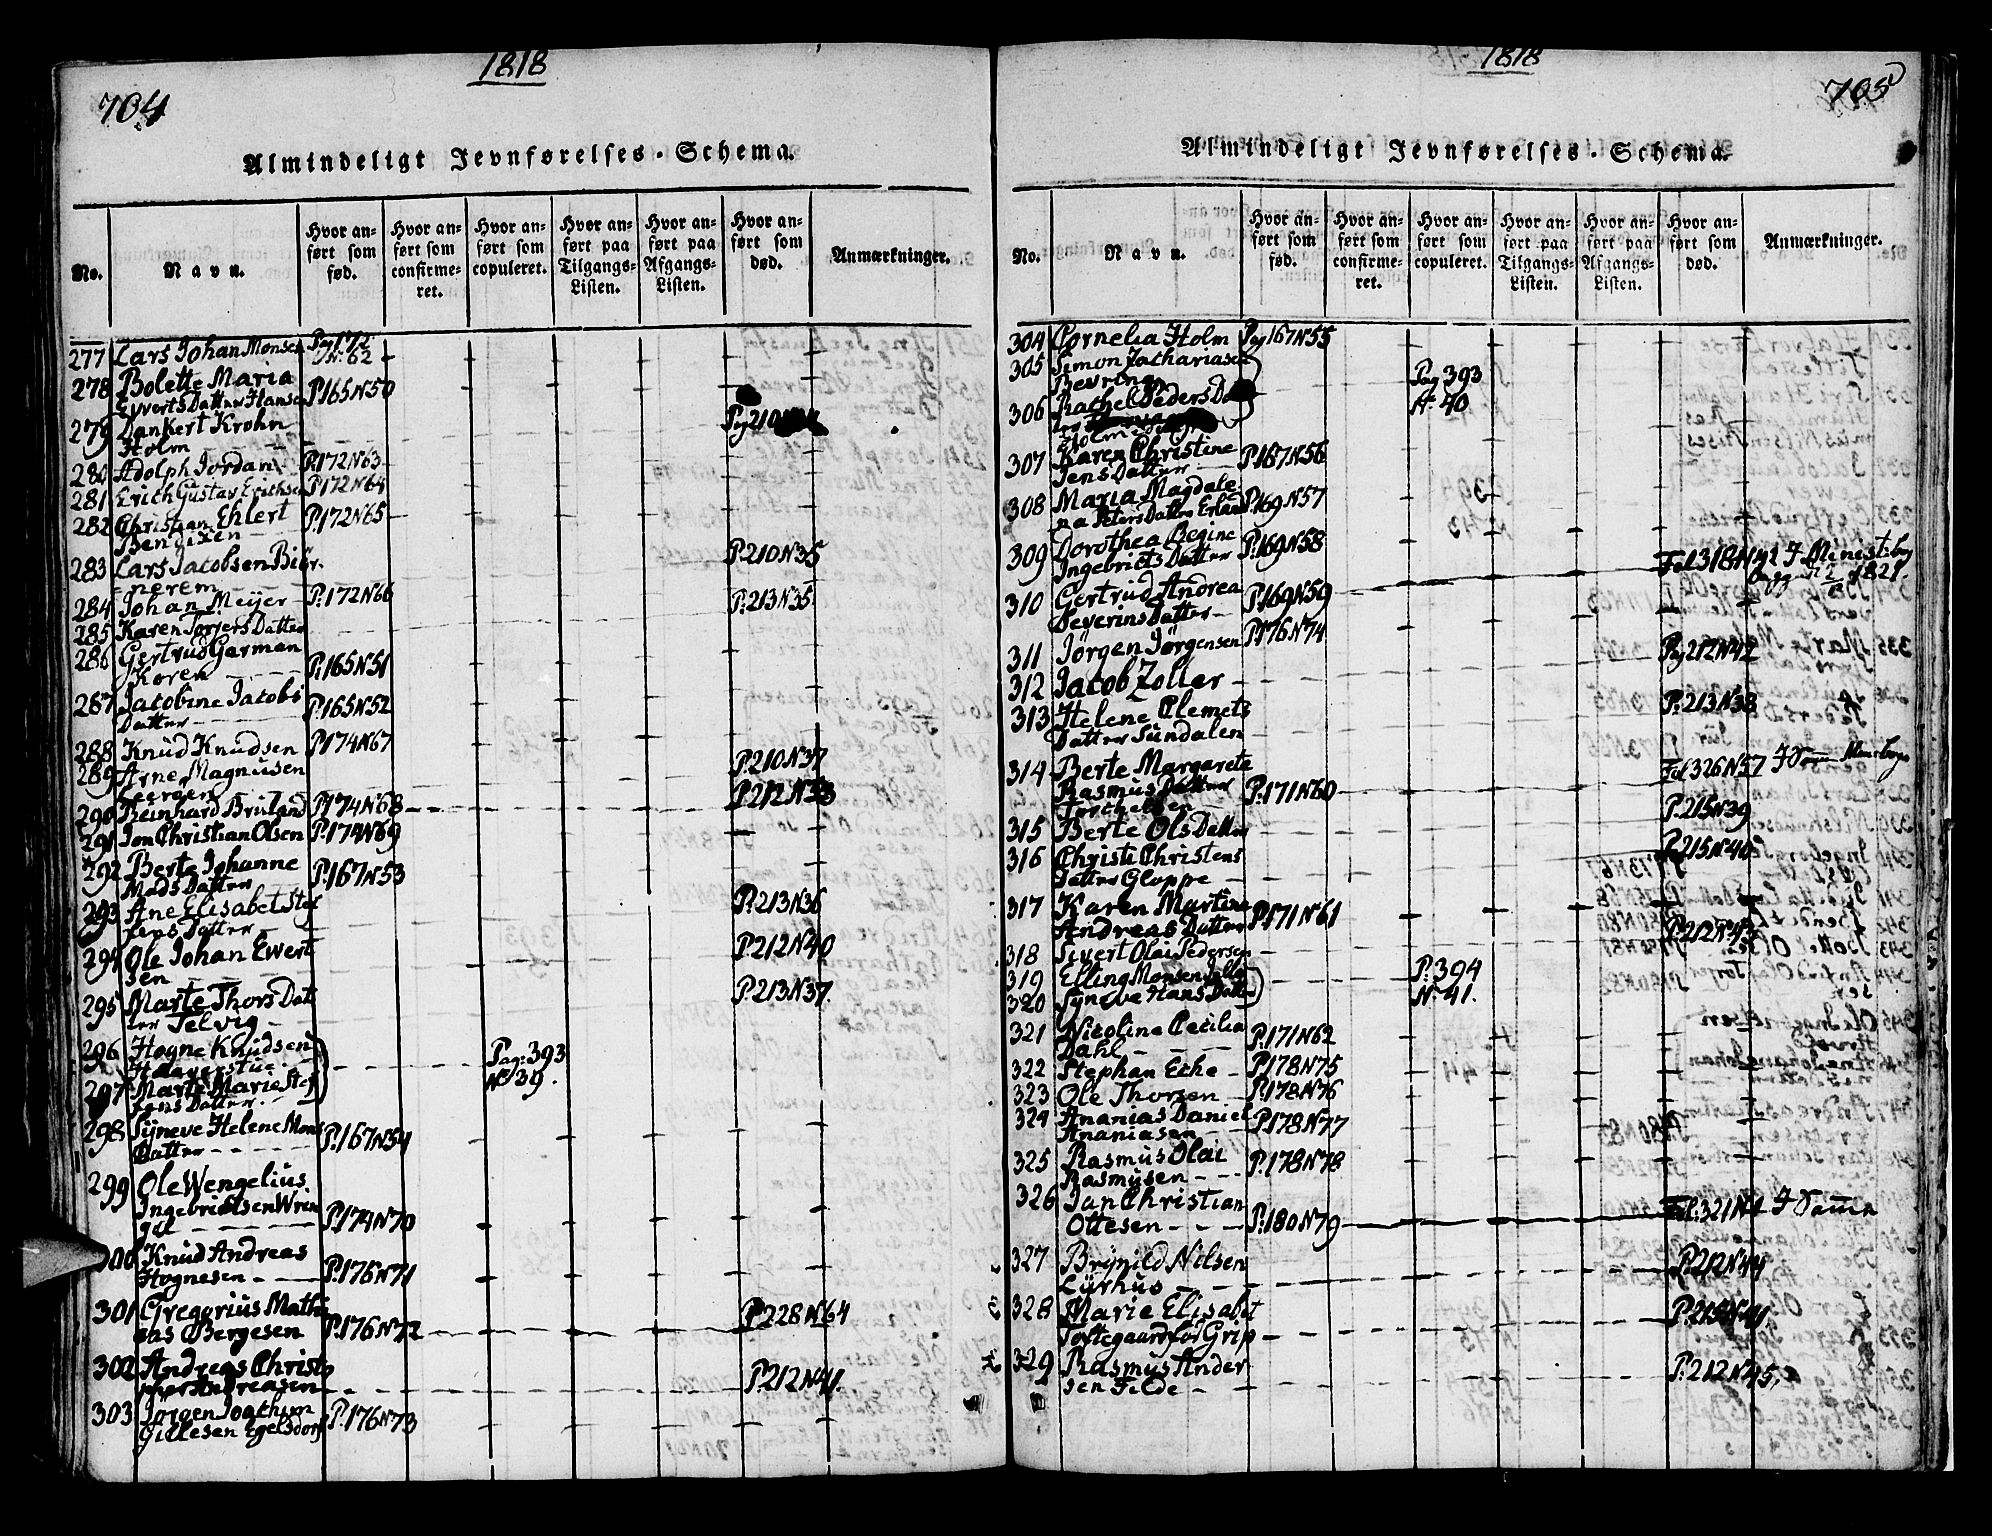 1818
704
Almindeligt Jevnførelses-Schema.
No.
Navn.
Hvor anført som fød.
Hvor anført som confirmeret.
Hvor anført som copuleret.
Hvor anført paa Tilgangs-Listen.
Hvor anført paa Afgangs-Listen.
Hvor anført som død.
Anmærkninger.
277 Lars Johan Monsen Pag 172 N. 62
278 Bolette Maria
Eyverts Datter Hansen P.165 N50
279 Dankert Krohn
Holm Pag 210
280 Adolph Jordan P.172 N63
281 Erich Gustav Erichsen P.172 N64
282 Christian Ehlert
Bendixen P.172 N65
283 Lars Jacobsen Biör
nerem P.210 N35
284 Johan Meÿer P.172 N66 P.213 N35
285 Karen Torgers Datter
286 Gertrud Garman
Koren P.165 N51
287 Jacobine Jacobs
Datter P.165 N52
288 Knud Knudsen P.174 N67
289 Arne Magnusen
P.210 N37
290 Reinhard Bruland P.174 N68 P.212 N38
291 Jon Christian Olsen P.174 N69
292 Berte Johanne
Mads Datter P.167 N53
293 Ane Elisabet Stef
fens Datter P.213 N36
294 Ole Johan Ewert
sen P.212 N40
295 Marte Thors Dat
ter Telvig P.213 N37.
296 Hogne Knudsen
Pag: 393
297 Marte Marie Stef
fens Datter. No 39.
298 Sÿneve Helene Mons
Datter P.167 N54
299 Ole Wengelius
Ingebrictsen Wrin
gel P.174 N70
300 Knud Andreas
Hognesen P.176 N71
301 Gregorius Mathi
as Bergesen P.176 N72 P.228 N64
302 Andreas Christo
pher Andreasen P.212 N41.
303 Jörgen Joachim
Gillesen Egelsdorf P.176 N73
1818
705
Almindeligt Jevnførelses-Schema.
No.
Navn.
Hvor anført som fød.
Hvor anført som confirmeret.
Hvor anført som copuleret.
Hvor anført paa Tilgangs-Listen.
Hvor anført paa Afgangs-Listen.
Hvor anført som død.
Anmærkninger.
304 Cornelia Holm Pag 167 N55
305 Simon Zachariasen
Bevring Pag 393
306 Rachel Peders Dat
ter N. 40
307 Karen Christine
Jens Datter P.167 N56
308 Maria Magdale
na Peters Datter Erland P.169 N57
309 Dorothea Regine
Ingebricts Datter P.169 N58
310 Gertrud Andrea
Severins Datter P.169 N59 Fol 318 1821.
311 Jörgen Jörgensen P.176 N74
312 Jacob Zoller Pag 212 N42
313 Helene Clemets
Datter Sundalen P.213 N38
314 Berte Margarete
Rasmus Datter
Torchelsen P.171 N60 Fol 326 N57
315 Berte Ols Datter P.215 N39
316 Christi Christens
Datter Gloppe P.215 N40
317 Karen Martine
Andreas Datter P.171 N61
318 Sivert Olai Pedersen P.212 N43
319 Elling Monsen P.394
320 Sÿneve Hans Datter N. 41.
321 Nicoline Cecilia
Dahl P.171 N62
322 Stephan Eche P.178 N75
323 Ole Thorsen P.178 N76
324 Ananias Daniel
Ananiasen P.178 N77
325 Rasmus Olai
Rasmusen P.178 N78
326 Jan Christian
Ottesen P.180 N79 Fol.321 N1
327 Brÿnild Nilsen
Lÿrhus P.212 N44
328 Marie Elisabet
Toftegaard for Grip P.215 N41.
329 Rasmus Ander
sen Felde P.212 N45,